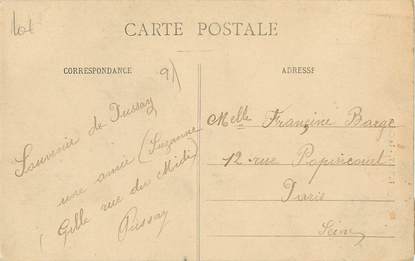 Lot
CARTE POSTALE
CORRESPONDANCE
91
ADRESSE
Souvenir de Pussay
une amie (Suzanne
Gelle rue du Midi)
Pussay
Melle Francine Barge
12 rue Popincourt
Paris
Seine